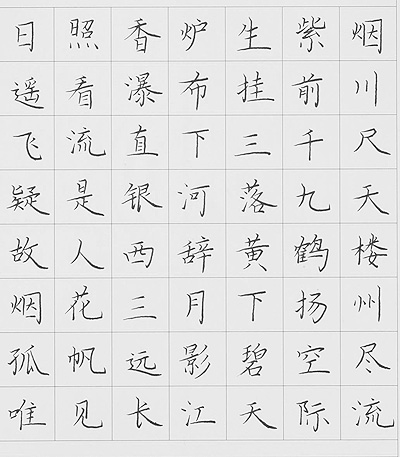 日照香炉生紫烟
遥看瀑布挂前川
飞流直下三千尺
疑是银河落九天
故人西辞黄鹤楼
烟花三月下扬州
孤帆远影碧空尽
唯见长江天际流